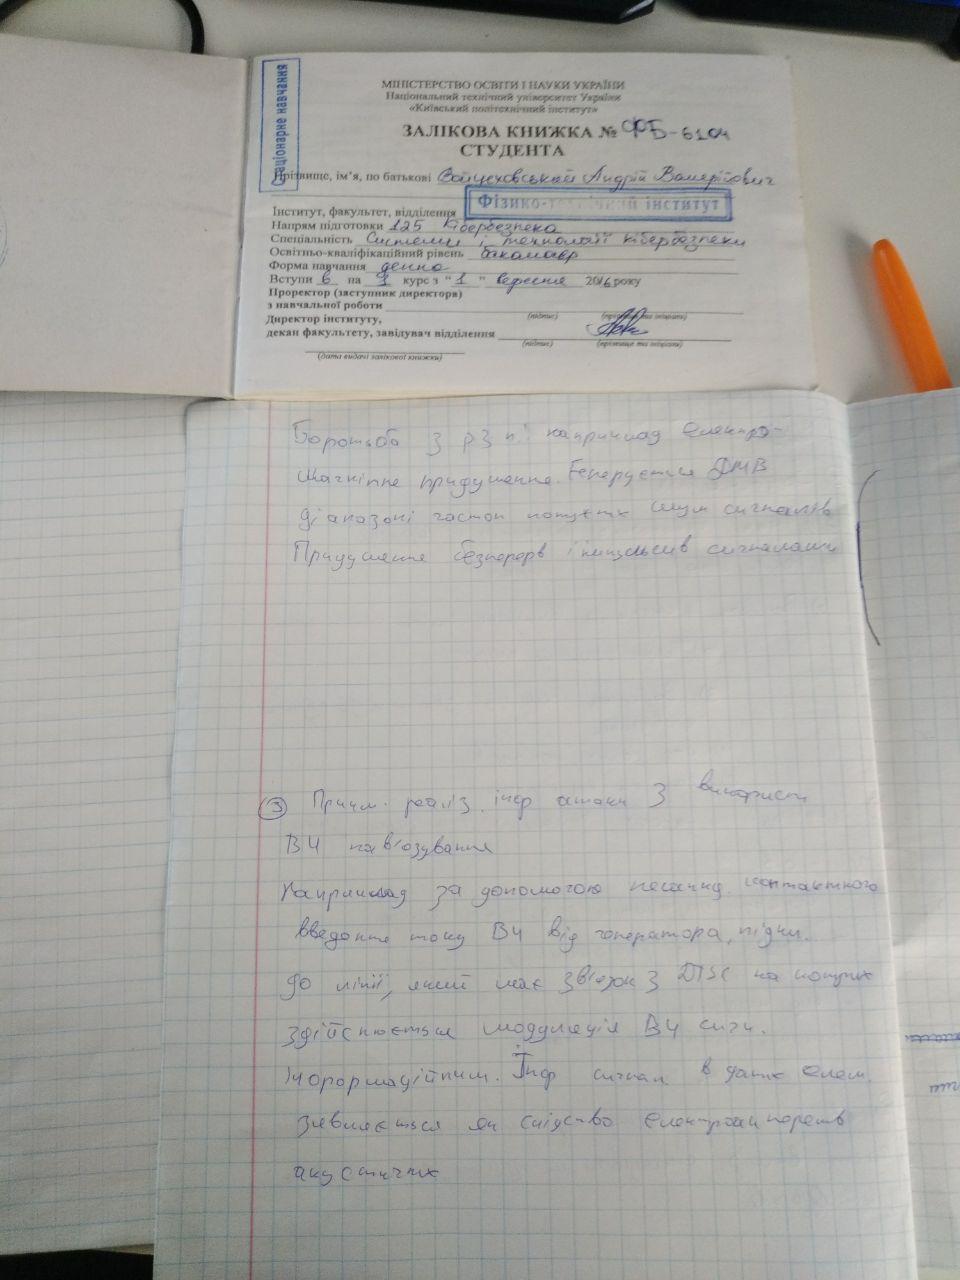 Стаціонарне навчання
МІНІСТЕРСТВО ОСВІТИ І НАУКИ УКРАЇНИ
Національний технічний університет України
«Київський політехнічний інститут»
ЗАЛІКОВА КНИЖКА № ФБ-6104
СТУДЕНТА
Прізвище, ім'я, по батькові Войцеховський Андрій Валерійович
Інститут, факультет, відділення Фізико-технічний інститут
Напрям підготовки 125 Кібербезпека
Спеціальність Системи і технології кібербезпеки
Освітньо-кваліфікаційний рівень бакалавр
Форма навчання денна
Вступив на 1 курс з "1" вересня 2016 року
Проректор (заступник директора)
з навчальної роботи
(підпис) (прізвище та ініціали)
Директор інституту,
декан факультету, завідувач відділення
(підпис) (прізвище та ініціали)
(дата видачі залікової книжки)
Боротьба з РЗП: наприклад електро-
магнітне придушення. Генерується ДМВ
діапазоні частот потужн шум сигналів
Придушення безперерв імпульсив сигналами
③ Принц. реаліз. інф атаки з використ
ВЧ нав'язування
Наприклад за допомогою контактного
введення току ВЧ від генератора, підкл.
до лінії, який має зв'язок з на котрих
здійснюється модуляція ВЧ сигн.
інформаційним. Інф сигнал в даних елем.
з'являється як електроак перетв
акустичних